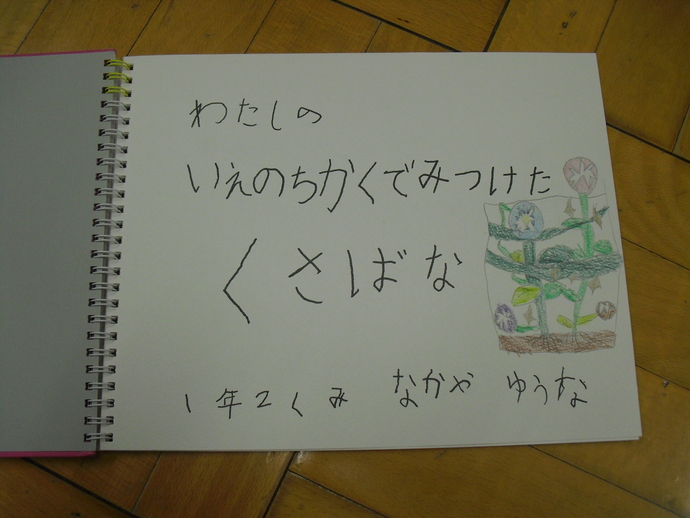 わたしの
いえのちかくでみつけた
くさばな
1年2くみ なかや ゆうな